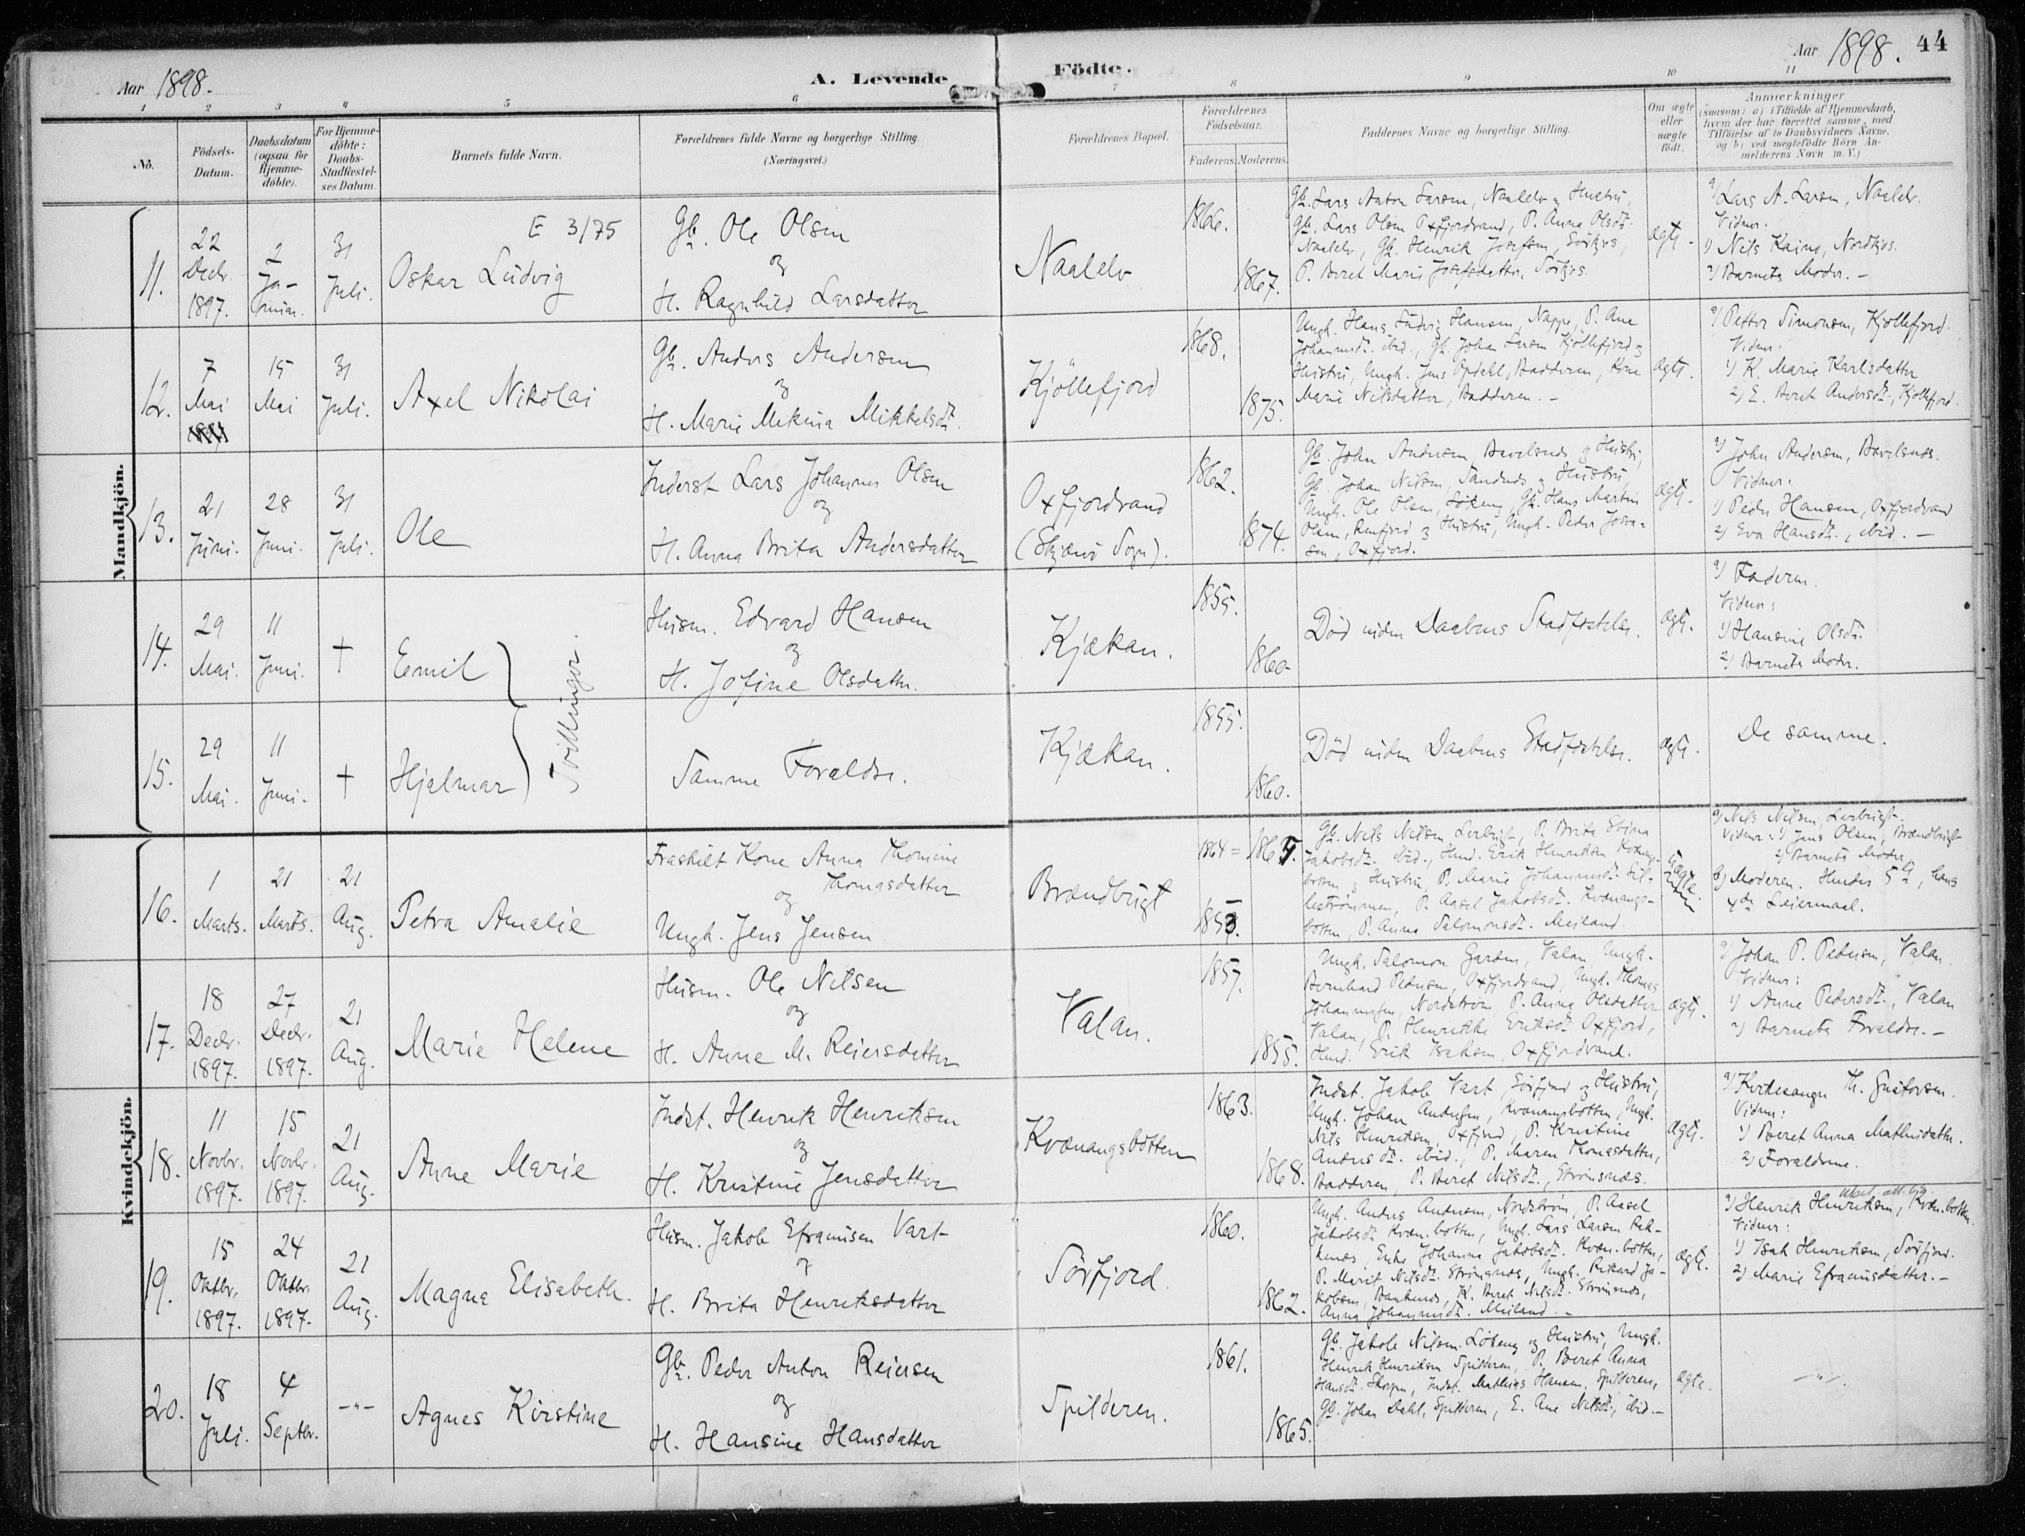 Aar 1898.
A. Levende
Födte.
Aar 1898.
44
1 2 3 4 5 6 7 8 9 10 11
No.
Födsels-Datum.
Daabsdatum (ogsaa for Hjemme-döbte).
For Hjemme-döbte: Daabs-Stadfæstel-ses Datum.
Barnets fulde Navn.
Forældrenes fulde Navne og borgerlige Stilling. (Næringsvei.)
Forældrenes Bopæl.
Forældrenes Födselsaar.
Faderens. Moderens.
Faddernes Navne og borgerlige Stilling.
Om ægte eller uægte födt.
Anmærkninger
(saasom: a) i Tilfælde af Hjemmedaab,
hvem der har forrettet samme, med
Tilföielse af to Daabsvidners Navne,
og b) ved uægtefödte Börn An-
melderens Navn m. V.)
Mandkjön.
11.
22 Decbr. 1897.
2 Ja-nuar.
31 Juli.
E 3/75
Oskar Ludvig
Gb. Ole Olsen
og
H. Ragnhild Larsdatter
Naalelv
1866.
1867.
Gb. Lars Anton Larsen, Naalelv og Hustru,
Gb. Lars Olsen Oxfjordvand, P. Anna Olsdt.
Naalelv, Gb. Henrik Josefsen,
P. Beret Marie Josefsdatter,
ægte.
a) Lars A. Larsen, Naalelv.
Vidner:
1) Nils Kaino,
2) Barnets Moder. –
12.
7 Mai
15 Mai
31 Juli.
Axel Nikolai
Gb. Anders Andersen
og
H. Marie Mekina Mikkelsdt.
Kjöllefjord
1868.
1875.
Ungk. Hans Ludvig Hansen, P. Ane
Johannesdt. ibid., Gb. Johan Larsen Kjöllefjord og
Hustru, Ungk. Jens Opdahl, Badderen, Kone
Marie Nilsdatter, Badderen. –
ægte.
a) Petter Simonsen, Kjöllefjord.
Vidner:
1) K. Marie Karlsdatter
2) E. Beret Andersdt., Kjöllefjord.
13.
21 Juni.
28 Juni.
31 Juli.
Ole
Inderst Lars Johannes Olsen
og
H. Anna Brita Andersdatter
Oxfjordvand
(Skjærvö Sogn).
1862.
1874.
Gb. John Andersen, og Hustru,
Gb. Johan Nilsen, og Hustru,
Ungk. Ole Olsen, Gb. Hans Martin
Olsen, og Hustru, Ungk. Peder Josva-
sen, Oxfjord.
ægte.
a) John Andersen,
Vidner:
1) Peder Hansen, Oxfjordvand
2) Eva Hansdt., ibid. –
14.
29 Mai.
11 Juni.
†
Emil
Tvillinger.
Husm. Edvard Hansen
og
H. Jofine Olsdatter.
Kjækan.
1855.
1860.
Död uden Daabens Stadfæstelse.
ægte.
a) Faderen.
Vidner:
1) Hansine Olsdt.
2) Barnets Moder.
15.
29 Mai.
11 Juni.
†
Hjalmar
Samme Forældre.
Kjækan.
1855.
1860.
Död uden Daabens Stadfæstelse.
ægte.
De samme.
Kvindekjön.
16.
1 Marts.
21 Marts.
21 Aug.
Petra Amalie
Fraskilt Kone Anna Thomine
Thomasdatter
og
Ungk. Jens Jensen
Brændbugt
1853.
Gb. Nils Nilsen P. Brita Stina
Jakobsdt. ibid., Husm. Erik Henriksen Kvænangs-
botten og Hustru, P. Marie Johannesdt.
P. Aasel Jakobsdt. Kvænangs-
botten, P. Anna Salomonsdt. Meiland.
a) Nils Nilsen,
Vidner: 1) Jens Olsen, Brændbugt
2) Barnets Moder
b) Moderen. Hendes 5te, hans
4de Leiermaal.
17.
18 Decbr. 1897.
27 Decbr. 1897.
21 Aug.
Marie Helene
Husm. Ole Nilsen
og
H. Anne M. Reiersdatter
Valan.
1857.
1855.
Ungk. Salomon Valan, Ungk.
Bernhard Pedersen, Oxfjordvand, Ungk. Thomas
Johannesen, Nordström, P. Anna Olsdatter
Valan, P. Henrikke Eriksdt. Oxfjord,
Husm. Erik Isaksen, Oxfjordvand.
ægte.
a) Johan P. Pedersen, Valan.
Vidner:
1) Anne Pedersdt., Valan
2) Barnets Forældre. –
18.
11 Novbr. 1897.
15 Novbr. 1897.
21 Aug.
Anne Marie
Indst. Henrik Henriksen
og
H. Kristine Jensdatter
Kvænangsbotten
1863.
1868.
Indst. Jakob Vart, Sörfjord og Hustru,
Ungk. Johan Andersen, Kvænangsbotten, Ungk.
Nils Henriksen, Oxfjord, P. Kristine
Andersdt. ibid., P. Maren Thomasdatter,
Badderen, P. Beret Nilsdt., Strömsnæs.
ægte.
a) Kirkesanger Th. Gustavsen.
Vidner:
1) Beret Anna Mathisdatter.
2) Forældrene.
19.
15 Oktbr. 1897.
24 Oktbr. 1897.
21 Aug.
Magna Elisabeth.
Husm. Jakob Efraimsen Vart
og
H. Brita Henriksdatter
Sörfjord.
1860.
1862.
Ungk. Anders Andersen, Nordström, P. Aasel
Jakobsdt. Kvæn.botten, Ungk. Lars Larsen
Enke Johanna Jakobsdt. Kvæn.botten,
P. Marit Nilsdt. Strömsnæs, Ungk. Rikard Ja-
kobsen, K. Beret Nilsdt. Strömsnæs,
Anna Johannesdt. Meiland. –
ægte.
a) Henrik Henriksen, Kvæn.botten.
Vidner:
1) Isak Henriksen, Sörfjord.
2) Marie Efraimsdatter. –
20.
18 Juli.
4 Septbr.
–"–
Agnes Kirstine
Gb. Peder Anton Reiersen
og
H. Hansine Hansdatter
Spilderen.
1861.
1865.
Gb. Jakob Nilsen Lökeng og Hustru, Ungk.
Henrik Henriksen Spilderen, P. Beret Anna
Hansdt. Indst. Mathias Hansen, Spilderen,
Gb. Johan Dahl, Spilderen, E. Ane Nilsdt., ibid. –
ægte.
–"–.